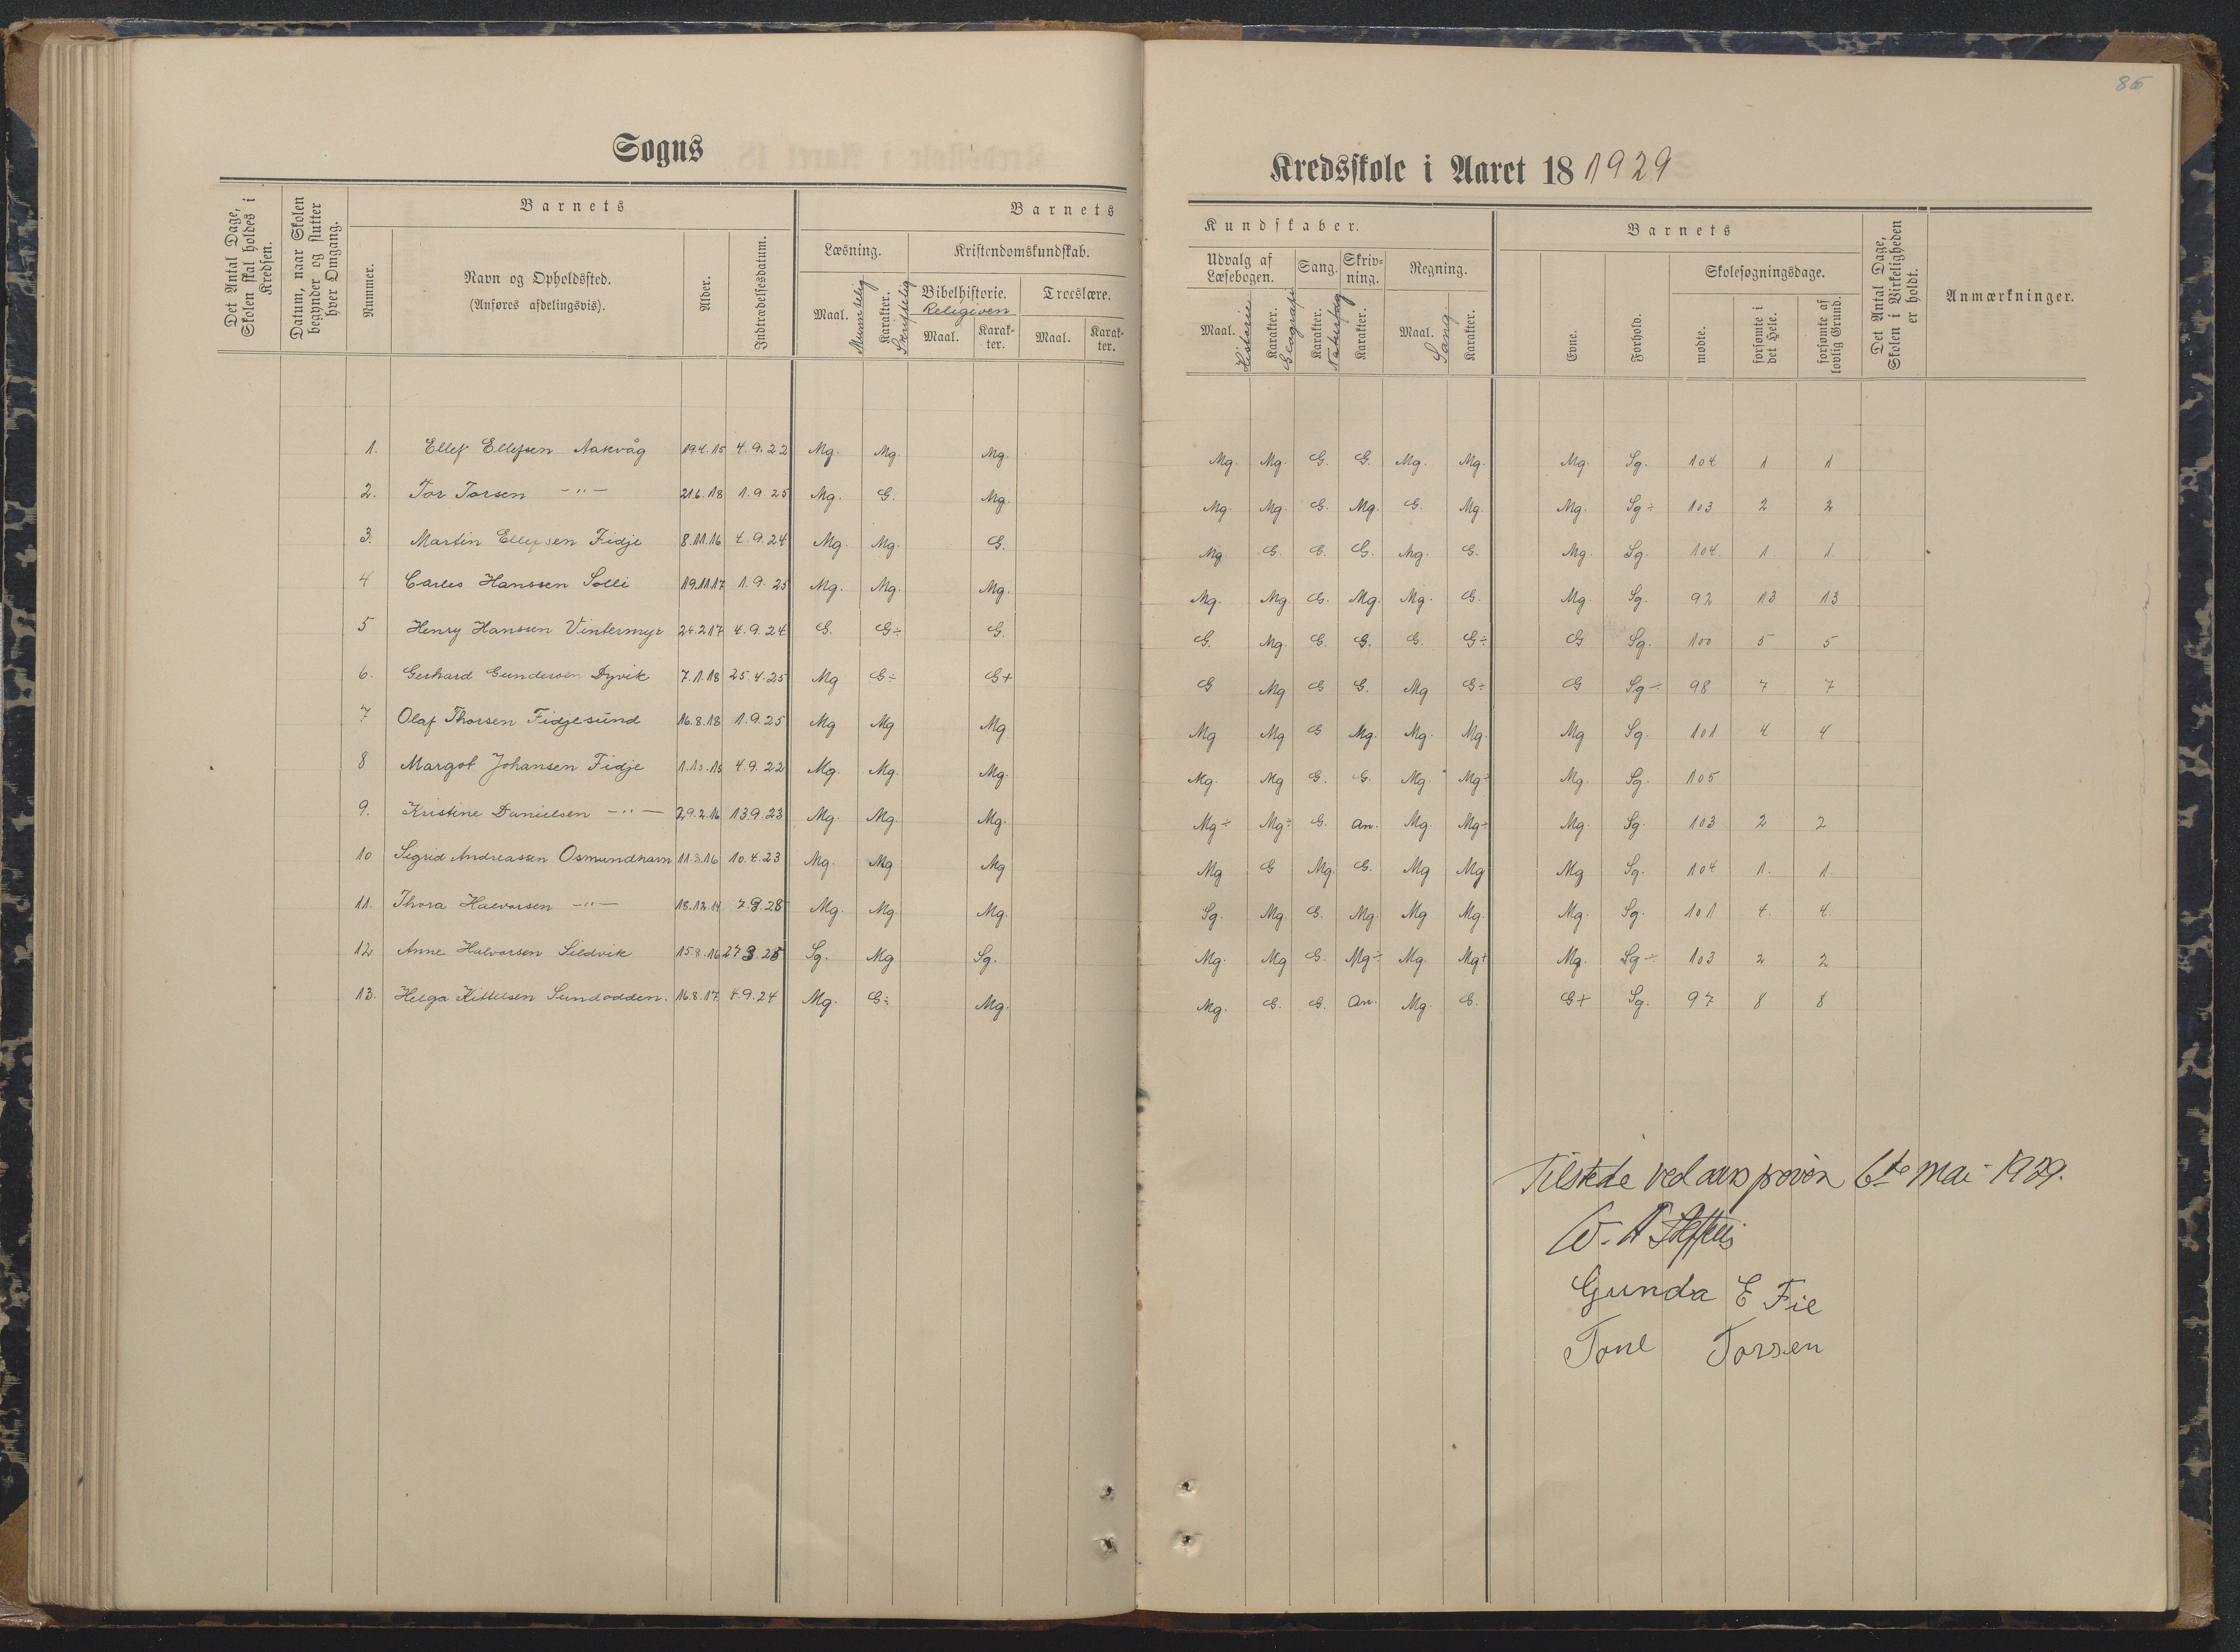 85
Sogns
Kredsskole i Aaret 18 1929
Det Antal Dage, Skolen skal holdes i Kredsen.
Datum, naar Skolen begynder og slutter hver Omgang.
Barnets
Nummer.
Navn og Opholdssted.
(Anføres afdelingsvis).
Alder.
Indtrædelsesdatum.
Barnets
Læsning.
Maal.
Muuntlig
Karakter.
Skriftlig
Kristendomskundskab.
Bibelhistorie.
Religiven
Maal.
Karakter.
Troeslære.
Maal.
Karakter.
Kundskaber.
Udvalg af Læsebogen.
Maal.
Historie
Karakter.
Geografi
Sang.
Karakter.
Naturfag
Skrivning.
Karakter.
Regning.
Maal.
Sang
Karakter.
Barnets
Evne.
Forhold.
Skolesøgningsdage.
mødte.
forsømte i det Hele.
forsømte af lovlig Grund.
Det Antal Dage, Skolen i Virkeligheden er holdt.
Anmærkninger.
1. Ellef Ellefsen Askvåg 19.4.15 4.9.22 Mg. Mg. Mg. Mg. Mg. G. G. Mg. Mg. Mg. Sg. 104 1 1
2. Tor Torsen -"- 21.6.18 1.9.25 Mg. G. Mg. Mg. Mg. G. Mg. G. Mg. Mg. Sg÷ 103 2 2
3. Martin Ellefsen Fidje 8.11.16 4.9.24 Mg. Mg. G. Mg. G. G. G. Mg. G. Mg. Sg. 104. 1 1.
4 Carles Hanssen Solli 19.11.17 1.9.25 Mg. Mg. Mg. Mg. Mg. G. Mg. Mg. G. Mg. Sg. 92 13 13
5 Henry Hanssen Vintermyr 24.2.17 4.9.24 G. G÷ G. G. Mg. G. G. G. G÷ G Sg. 100 5 5
6. Gerhard Gundersen Dyvik 7.1.18 25.4.25 Mg G÷ G+ G Mg G G. Mg G÷ G Sg÷ 98 7 7
7 Olaf Thorsen Fidjesund 16.8.18 1.9.25 Mg Mg Mg Mg Mg G Mg. Mg. Mg. Mg Sg. 101 4 4
8 Margot Johansen Fidje 1.10.15 4.9.22 Mg. Mg. Mg. Mg. Mg G. G. Mg. Mg÷ Mg. Sg. 105
9. Kristine Danielsen -"- 29.2.16 13.9.23 Mg. Mg. Mg. Mg÷ Mg÷ G. an. Mg. Mg÷ Mg. Sg. 103 2 2
10 Sigrid Andreassen Osmundhavn 11.3.16 10.4.23 Mg. Mg Mg Mg G Mg. G. Mg Mg Mg Sg. 104 1. 1.
11. Thora Halvorsen -"- 18.12.14 7.9.28 Mg. Mg. Mg. Sg. Mg. G. Mg. Mg Mg. Mg. Sg. 101 4. 4.
12 Anne Halvorsen Sildvik 15.8.16 27.3.25 Sg. Mg Sg. Mg. Mg G. Mg÷ Mg. Mg+ Mg. Sg÷ 103 2 2
13. Helga Kittelsen Sundodden. 16.8.17. 4.9.24 Mg. G÷ Mg. Mg. G. G. an. Mg. G. G+ Sg. 97 8 8
Tilstede ved års prøven 6te mai 1929.
Gunda E Fie
Tone Torsen